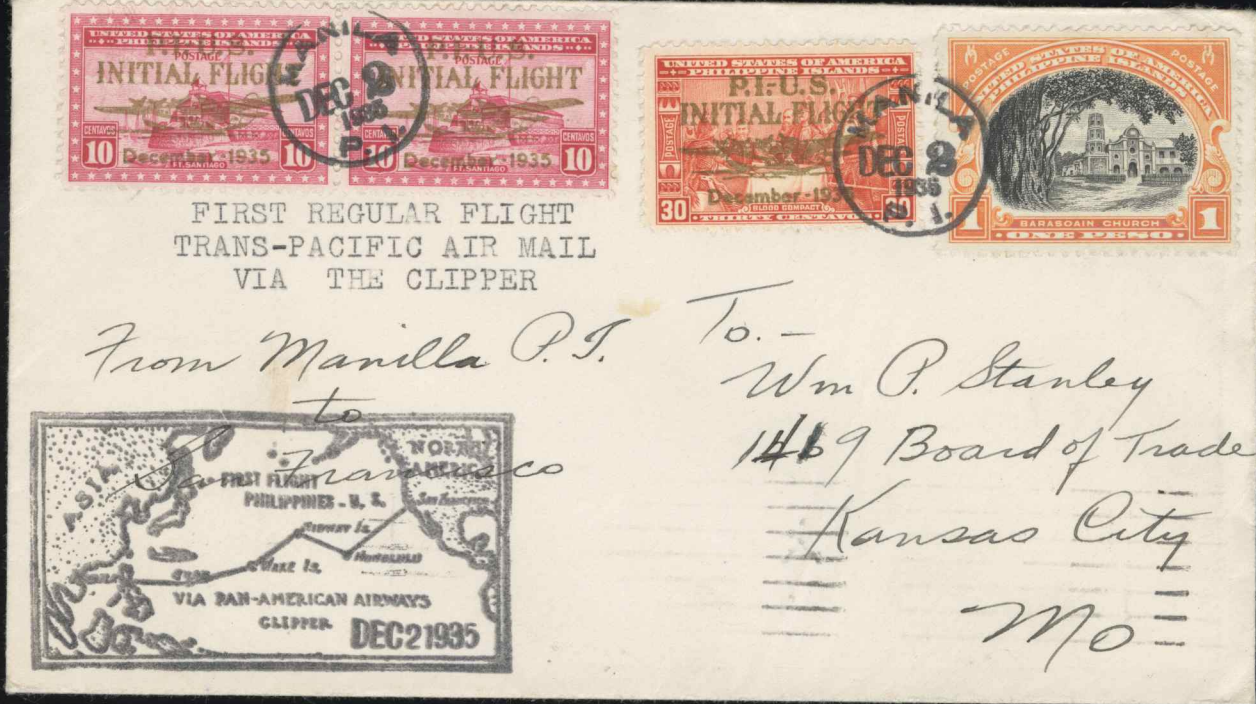 UNITED STATES OF AMERICA
PHILIPPINE ISLANDS
POSTAGE
P.I.-U.S.
INITIAL FLIGHT
CENTAVOS
10
10
December-1935
FT. SANTIAGO
UNITED STATES OF AMERICA
PHILIPPINE ISLANDS
POSTAGE
P.I.-U.S.
INITIAL FLIGHT
CENTAVOS
10
10
December-1935
FT. SANTIAGO
MANILA
DEC 2
1935
P. I.
UNITED STATES OF AMERICA
PHILIPPINE ISLANDS
P.I.-U.S.
INITIAL FLIGHT
POSTAGE
POSTAGE
December-193
BLOOD COMPACT
30
THIRTY CENTAVOS
MANILA
DEC 2
1935
P. I.
POSTAGE
POSTAGE
UNITED STATES OF AMERICA
PHILIPPINE ISLANDS
BARASOAIN CHURCH
1
ONE PESO
1
FIRST REGULAR FLIGHT
TRANS-PACIFIC AIR MAIL
VIA THE CLIPPER
From Manilla P.I.
to
San Francisco
To.-
Wm P. Stanley
1419 Board of Trade
Kansas City
Mo
ASIA
NORTH
AMERICA
FIRST FLIGHT
PHILIPPINES - U. S.
SAN FRANCISCO
MIDWAY IS.
HONOLULU
WAKE IS.
VIA PAN-AMERICAN AIRWAYS
CLIPPER
DEC 2 1935